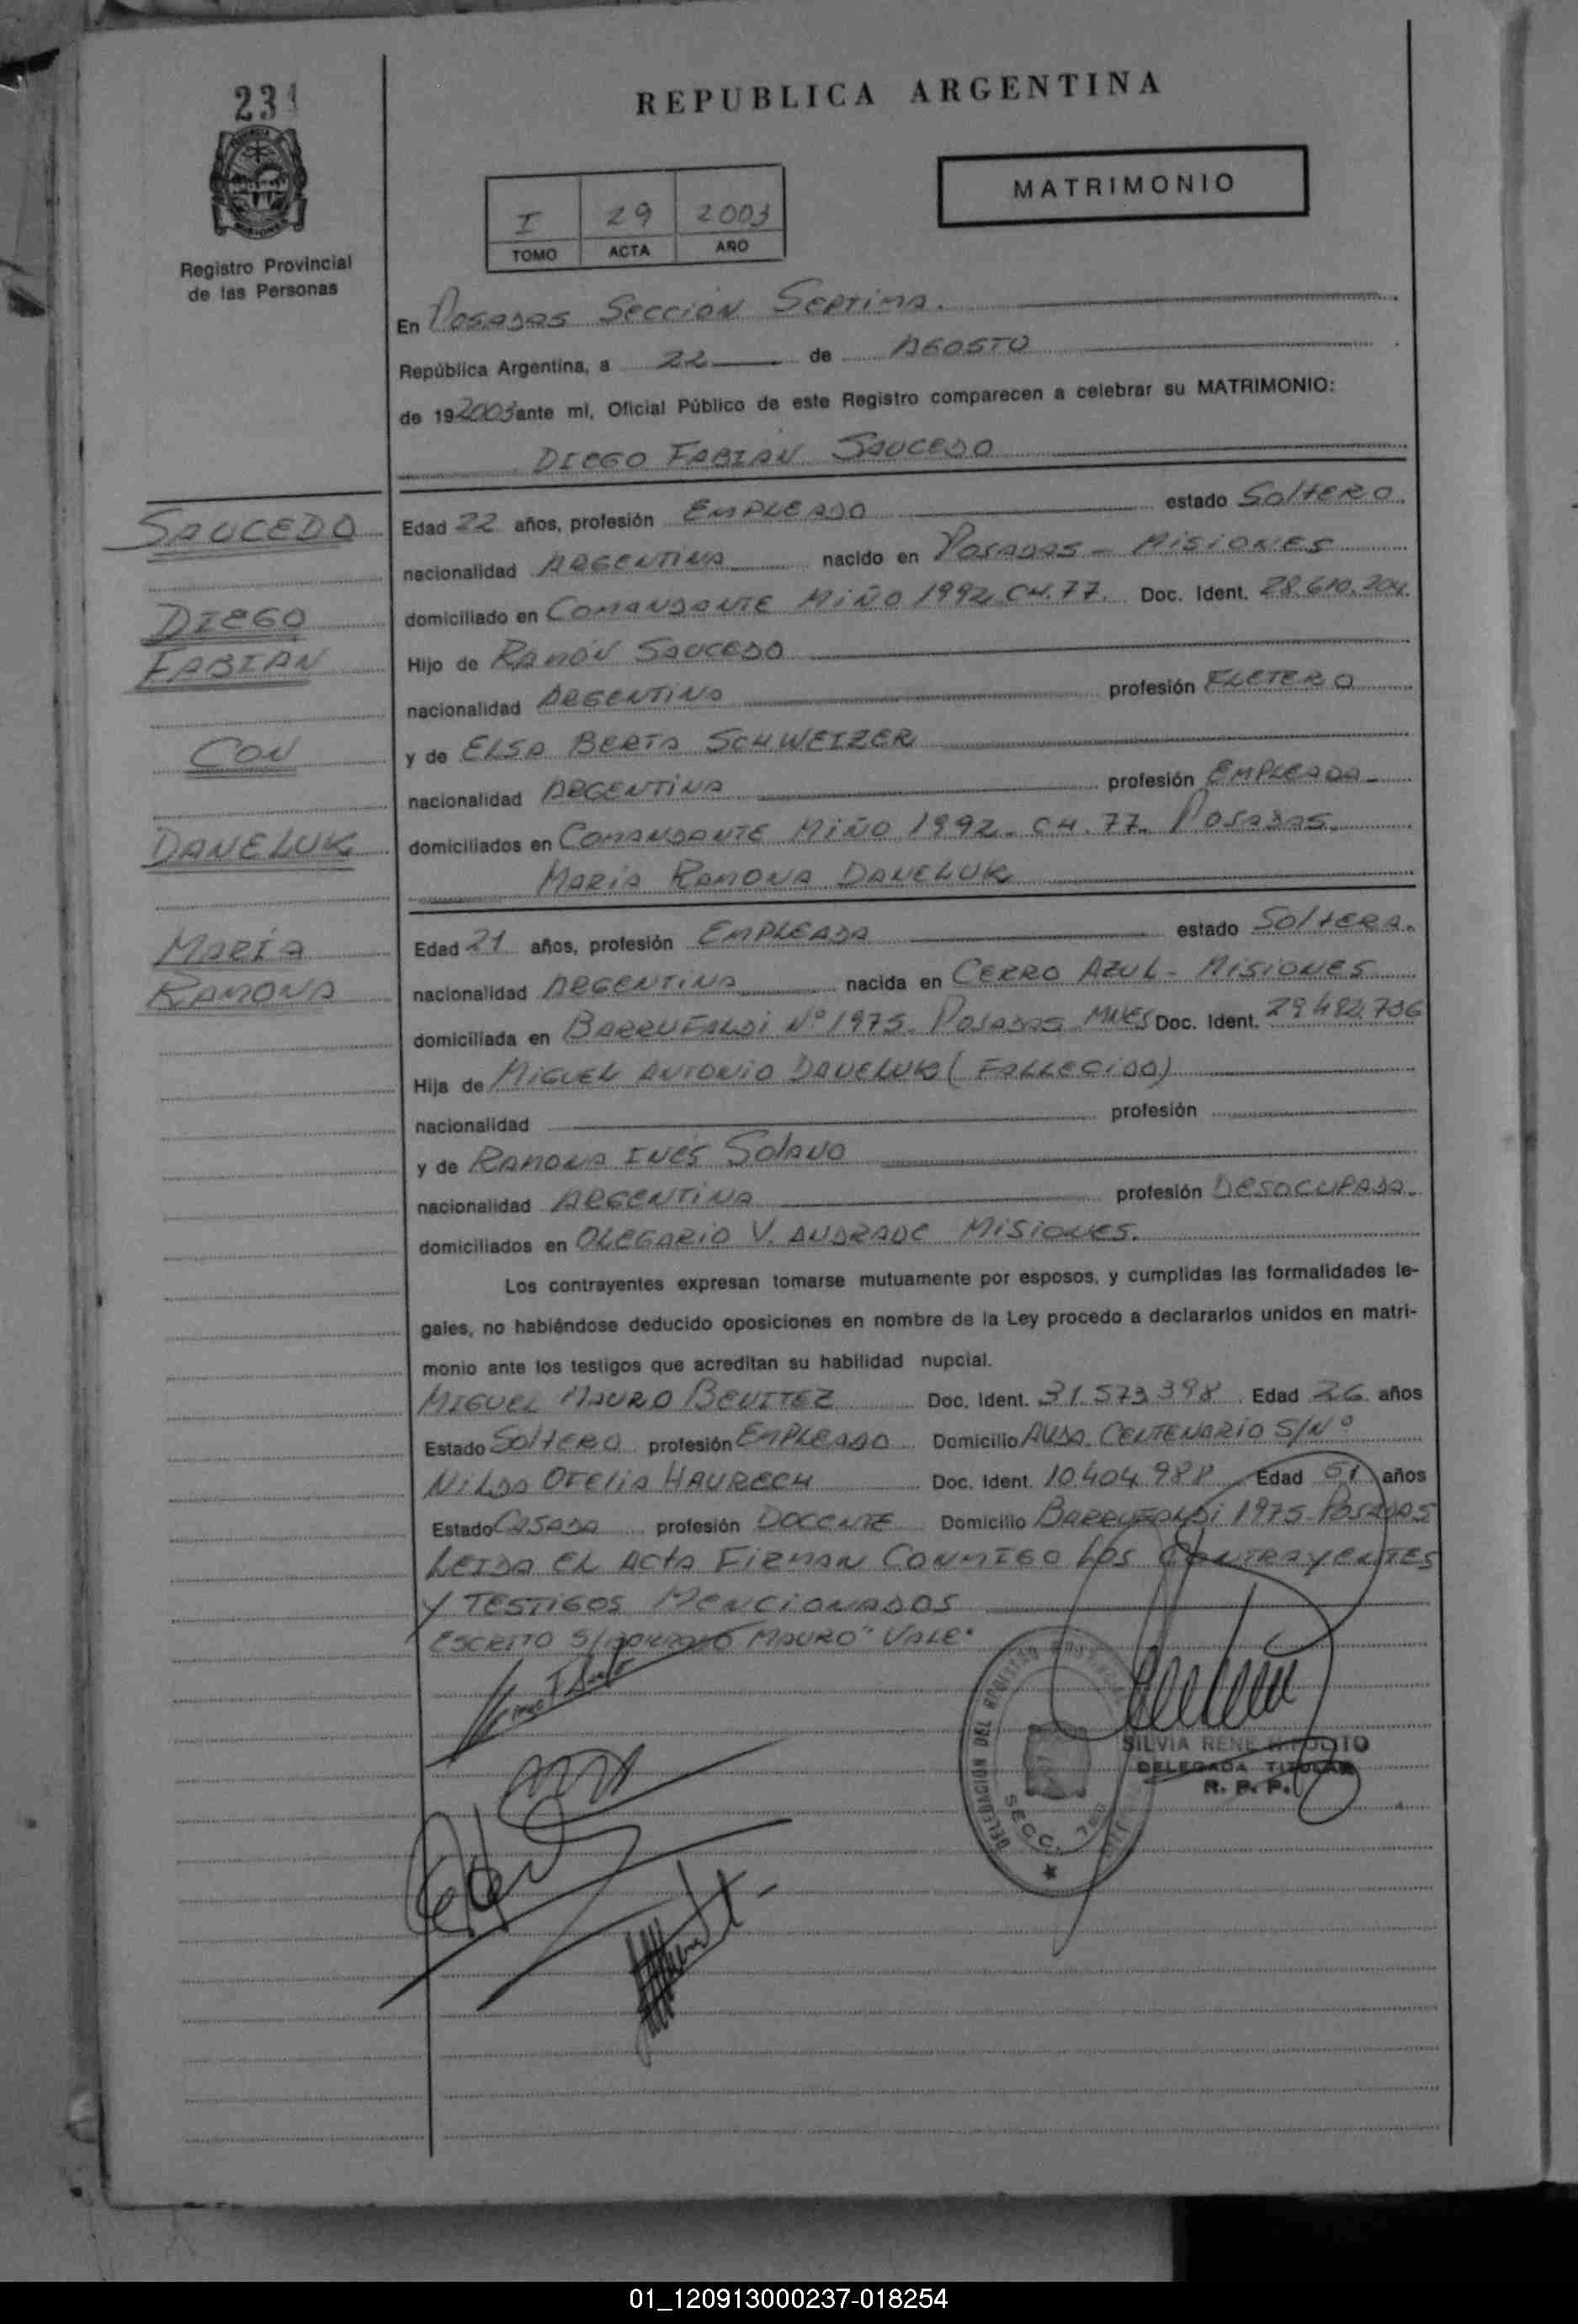 231
REPUBLICA ARGENTINA
MATRIMONIO
I 29 2003
TOMO ACTA AÑO
Registro Provincial
de las Personas
En Posadas Sección Septima.
República Argentina, a 22 de AGOSTO
de 192003 ante mi, Oficial Público de este Registro comparecen a celebrar su MATRIMONIO:
DIEGO FABIAN SAUCEDO
SAUCEDO
DIEGO
FABIAN
CON
DANELUK
MARÍA
RAMONA
Edad 22 años, profesión EMPLEADO estado SOLTERO
nacionalidad ARGENTINA nacido en POSADAS - MISIONES
domiciliado en COMANDANTE MIÑO 1992 CH. 77. Doc. Ident. 28.610.204
Hijo de RAMÓN SAUCEDO
nacionalidad ARGENTINA profesión FLETERO
y de ELSA BERTA SCHWEIZER
nacionalidad ARGENTINA profesión EMPLEADA
domiciliados en COMANDANTE MIÑO 1992. CH. 77. POSADAS.
MARIA RAMONA DANELUK
Edad 21 años, profesión EMPLEADA estado SOLTERA.
nacionalidad ARGENTINA nacida en CERRO AZUL - MISIONES
domiciliada en BARRUFALDI Nº 1975. POSADAS MNES Doc. Ident. 29.482.736
Hija de MIGUEL ANTONIO DANELUK (FALLECIDO)
nacionalidad profesión
y de RAMONA INÉS SOLANO
nacionalidad ARGENTINA profesión DESOCUPADA.
domiciliados en OLEGARIO V. ANDRADE MISIONES.
Los contrayentes expresan tomarse mutuamente por esposos, y cumplidas las formalidades le-
gales, no habiéndose deducido oposiciones en nombre de la Ley procedo a declararlos unidos en matri-
monio ante los testigos que acreditan su habilidad nupcial.
MIGUEL MAURO BENITEZ Doc. Ident. 31.573.398 Edad 26 años
Estado SOLTERO profesión EMPLEADO Domicilio AVDA. CENTENARIO S/Nº
NILDA OFELIA HAURECH Doc. Ident. 10.404.988 Edad 51 años
Estado CASADA profesión DOCENTE Domicilio BARRUFALDI 1975. POSADAS
LEIDA EL ACTA FIRMAN CONMIGO LOS CONTRAYENTES
Y TESTIGOS MENCIONADOS
ESCRITO S/BORRADO MAURO" VALE.
DELEGACION DEL REGISTRO PROVINCIAL
SECC. 7
SILVIA RENE HIPOLITO
DELEGADA TITULAR
R. P. P.
01_120913000237-018254